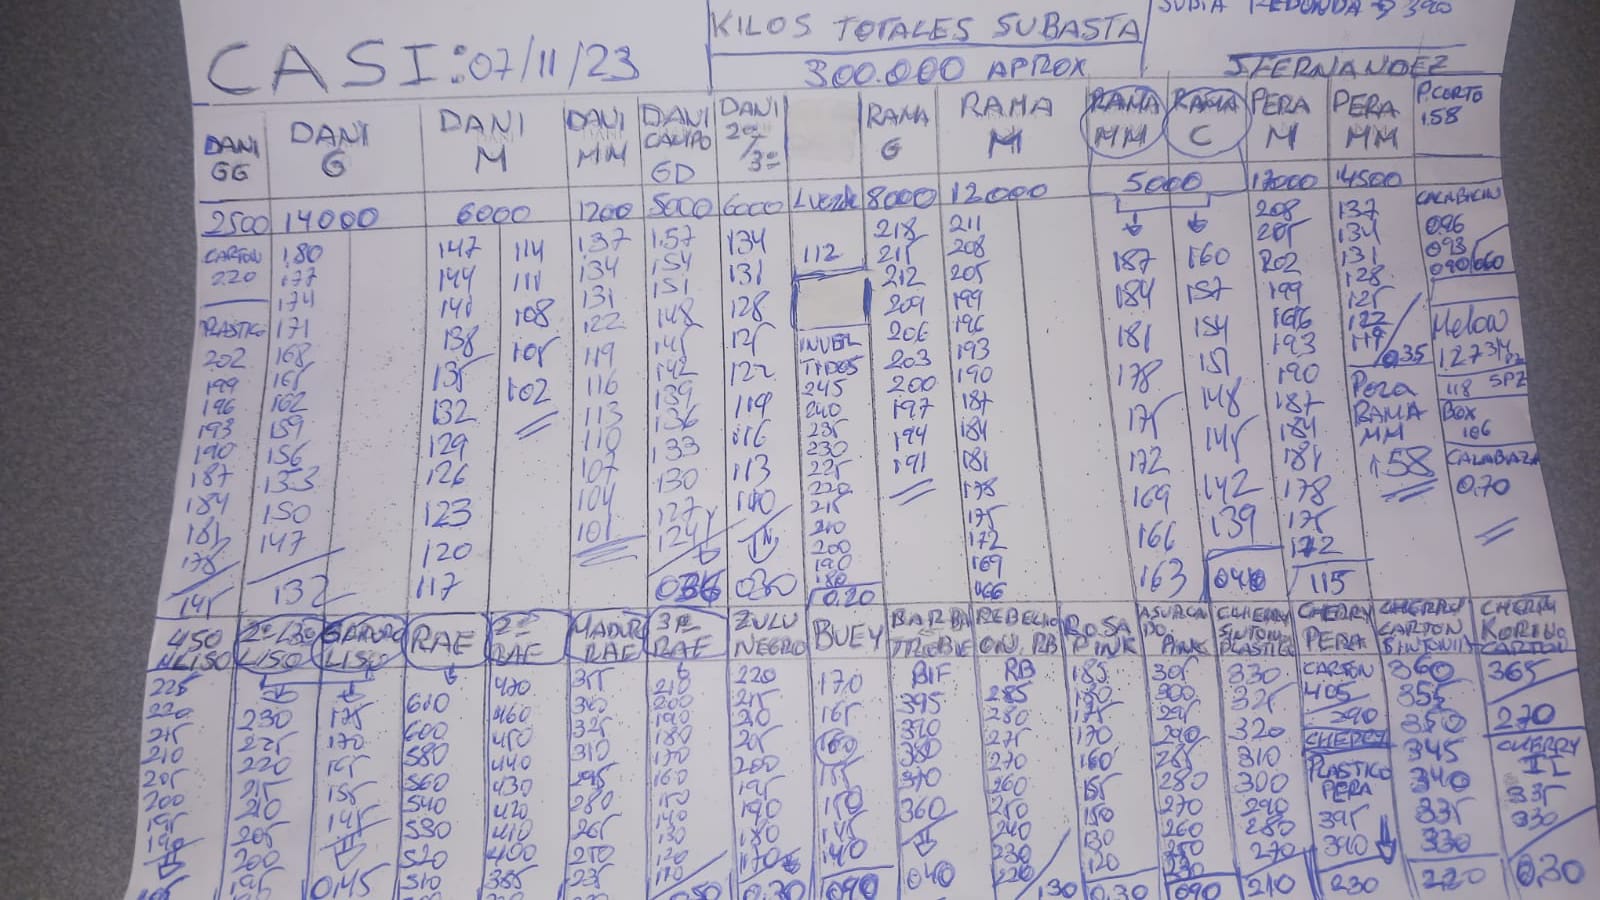 CASI: 07/11/23
KILOS TOTALES SUBASTA
300.000 APROX
SUBIA REDONDA → 390
JFERNANDEZ
DANI GG
DANI G
DANI M
DANI MM
DANI CAMPO GD
DANI 2ª/3ª
RAMA G
RAMA M
RAMA MM
RAMA C
PERA M
PERA MM
P.CORTO 158
2500 14000 6000 1200 5000 6000 8000 12000 5000 14500
CARTON
220
PLASTICO
202
199
196
193
190
187
184
181
178
145
180
177
174
171
168
165
162
159
156
153
150
147
132
147
144
141
138
135
132
129
126
123
120
117
114
111
108
105
102
137
134
131
122
119
116
113
110
107
104
101
157
154
151
148
145
142
139
136
133
130
127
124
134
131
128
125
122
119
116
113
110
030
112
INVER
TIDOS
245
240
235
230
225
220
215
210
200
190
180
0.20
218
215
212
209
206
203
200
197
194
191
211
208
205
199
196
193
190
187
184
181
178
175
172
169
166
187
184
181
178
175
172
169
166
163
160
157
154
151
148
145
142
139
040
208
205
202
199
196
193
190
187
184
181
178
175
172
115
137
134
131
128
125
122
119
035
PERA
RAMA
MM
158
CALABACIN
096
093
090/060
Melon
118 SPZ
BOX
106
CALABAZA
0.70
2º/130 LISO
RAE
2º RAE
MADUR RAE
3º RAE
ZULU NEGRO
BUEY
BARBA
REBELION. RB
ROSA PINK
ASURCADO PINK
CHERRY SINTON PLASTICO
CHERRY PERA
CHERRY CARTON SINTONIN
CHERRY KORINO CARTON
225
220
215
210
205
200
195
190
230
225
220
215
210
205
200
195
175
170
165
155
145
0145
610
600
580
560
540
530
520
510
470
460
450
440
430
420
410
400
385
355
340
325
310
295
280
265
250
235
210
200
190
180
170
160
150
140
130
120
110
050
220
215
210
205
200
195
190
180
170
0.30
170
165
160
155
150
145
140
090
BIF
395
390
380
370
360
040
RB
285
280
275
270
260
250
240
230
220
130
185
180
175
170
160
155
150
130
120
0.30
305
300
295
290
285
280
270
260
250
230
090
330
325
320
310
300
290
280
270
210
CARTON
405
290
CHERRY
PLASTICO
PERA
395
390
230
360
355
350
345
340
335
330
220
365
270
CHERRY
II
335
330
0.30